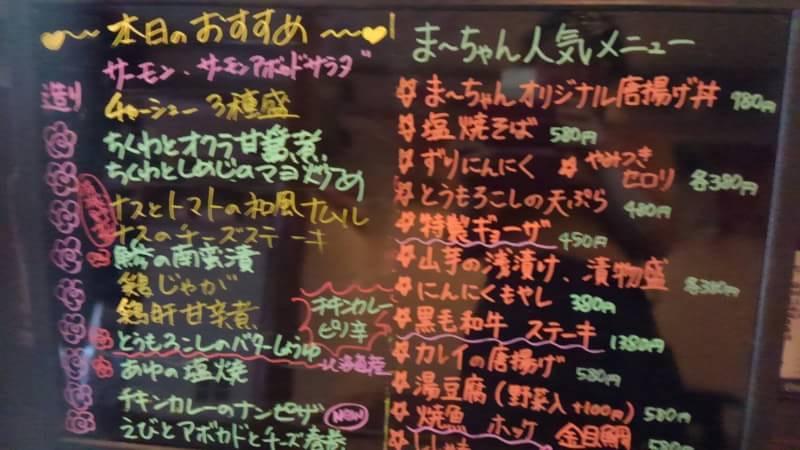 本日のおすすめ
サーモン、サーモンアボカドサラダ
造り
チャーシュー3種盛
ちくわとオクラ甘煮
ちくわとしめじのマヨ炒め
ナスとトマトの和風ナムル
ナスのチーズステーキ
鯵の南蛮漬
鶏じゃが
鶏肝甘辛煮
チキンカレー
ピリ辛
とうもろこしのバターしょうゆ
あゆの塩焼
チキンカレーのナンピザ NEW
えびとアボカドとチーズ春巻
ま〜ちゃん人気メニュー
ま〜ちゃんオリジナル唐揚げ丼 980円
塩焼そば 580円
ずりにんにく やみつきセロリ 各380円
とうもろこしの天ぷら 480円
特製ギョーザ 450円
山芋の浅漬け、漬物盛 各380円
にんにくもやし 380円
黒毛和牛 ステーキ 1380円
カレイの唐揚げ 580円
湯豆腐(野菜入+100円) 580円
焼魚 ホッケ 金目鯛 580円